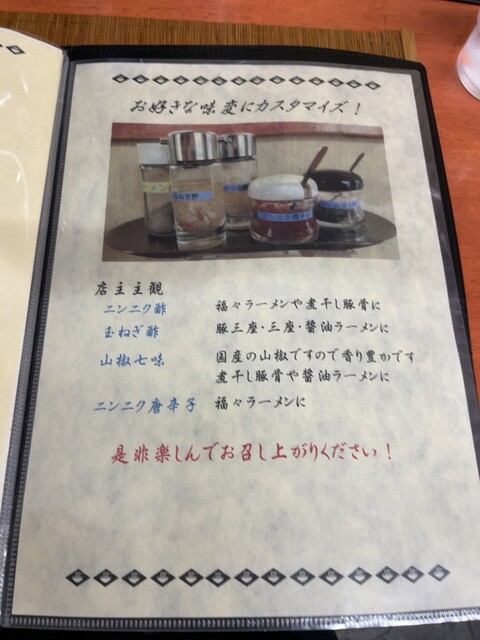 お好きな味変にカスタマイズ！
ラーメン
玉ねぎ酢
ニンニク唐辛子
店主主観
ニンニク酢 福々ラーメンや煮干し豚骨に
玉ねぎ酢 豚三座・三座・醤油ラーメンに
山椒七味 国産の山椒ですので香り豊かです
煮干し豚骨や醤油ラーメンに
ニンニク唐辛子 福々ラーメンに
是非楽しんでお召し上がりください！